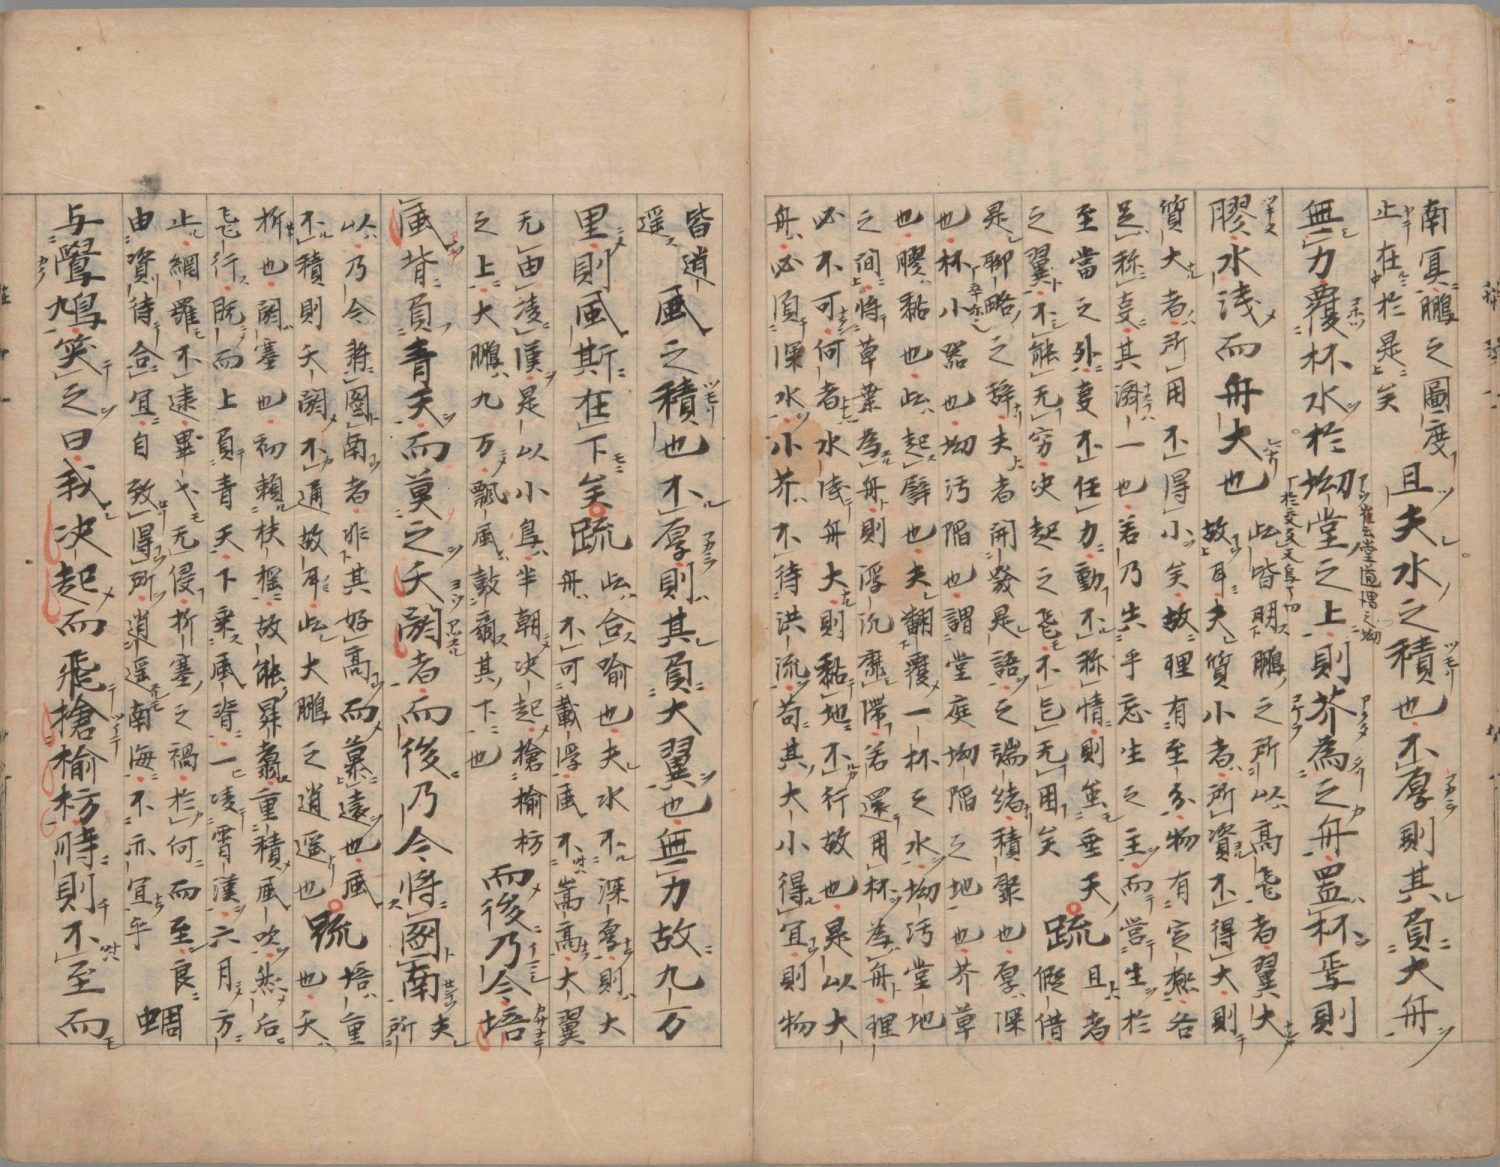 南冥鵬之圖度
止在於是矣
且夫水之積也不厚則其負大舟
無力覆杯水於坳堂之上則芥為之舟置杯焉則
膠水浅而舟大也
此皆明鵬之所以高飛者翼大
故耳夫質小者所資不得大則
質大者所用不得小矣故理有至分物有定極各
足称事其濟一也若乃失乎忘生之主而营生於
至當之外事不任力動不称情則雖垂天
之翼不能无穷决起之飛不乞无困矣
疏
且者
假借
是聊略之辞夫者開發是語之端緒積聚也厚深
也杯小器也坳污陥也謂堂庭坳陥之地也芥草
也膠黏也此起譬也夫翻覆一杯之水坳污堂地
之間將草葉為舟則浮汎靡滞若還用杯為舟理
必不可何者水浅舟大則黏地不行故也是以大
舟必須深水小芥不待洪流苟其大小得宜則物
皆逍
遥
風之積也不厚則其負大翼也無力故九万
里則風斯在下矣疏
此合喻也夫水不深厚則大
舟不可載浮風不嵩高大翼
无由凌漢是以小鳥半朝决起搶榆枋
之上大鵬九万飄風鼓扇其下也
而後乃今培
風背負青天而莫之夭閼者而後乃今將圖南
夫
所
以乃今將圖南者非其好高而慕遠也風
不積則夭閼不通故耳此大鵬之逍遥也
疏
培重
也夭
折也閼塞也初頼扶揺故能昇翥重積風吹然后
飛行既而上負青天下乗風脊一凌霄漢六月方
止網羅不逮畢弋无侵折塞之禍於何而至良
由資待合宜自致得所逍遥南海不亦宜乎
蜩
与鷽鳩笑之曰我决起而飛搶榆枋時則不至而